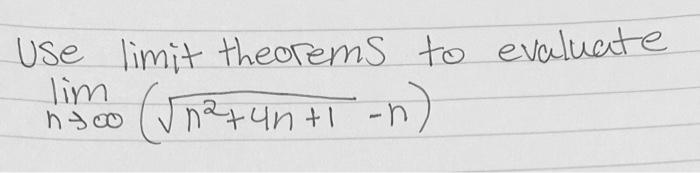 Use limit theorems to evaluate
lim
n→∞ (√n²+4n+1 -n)